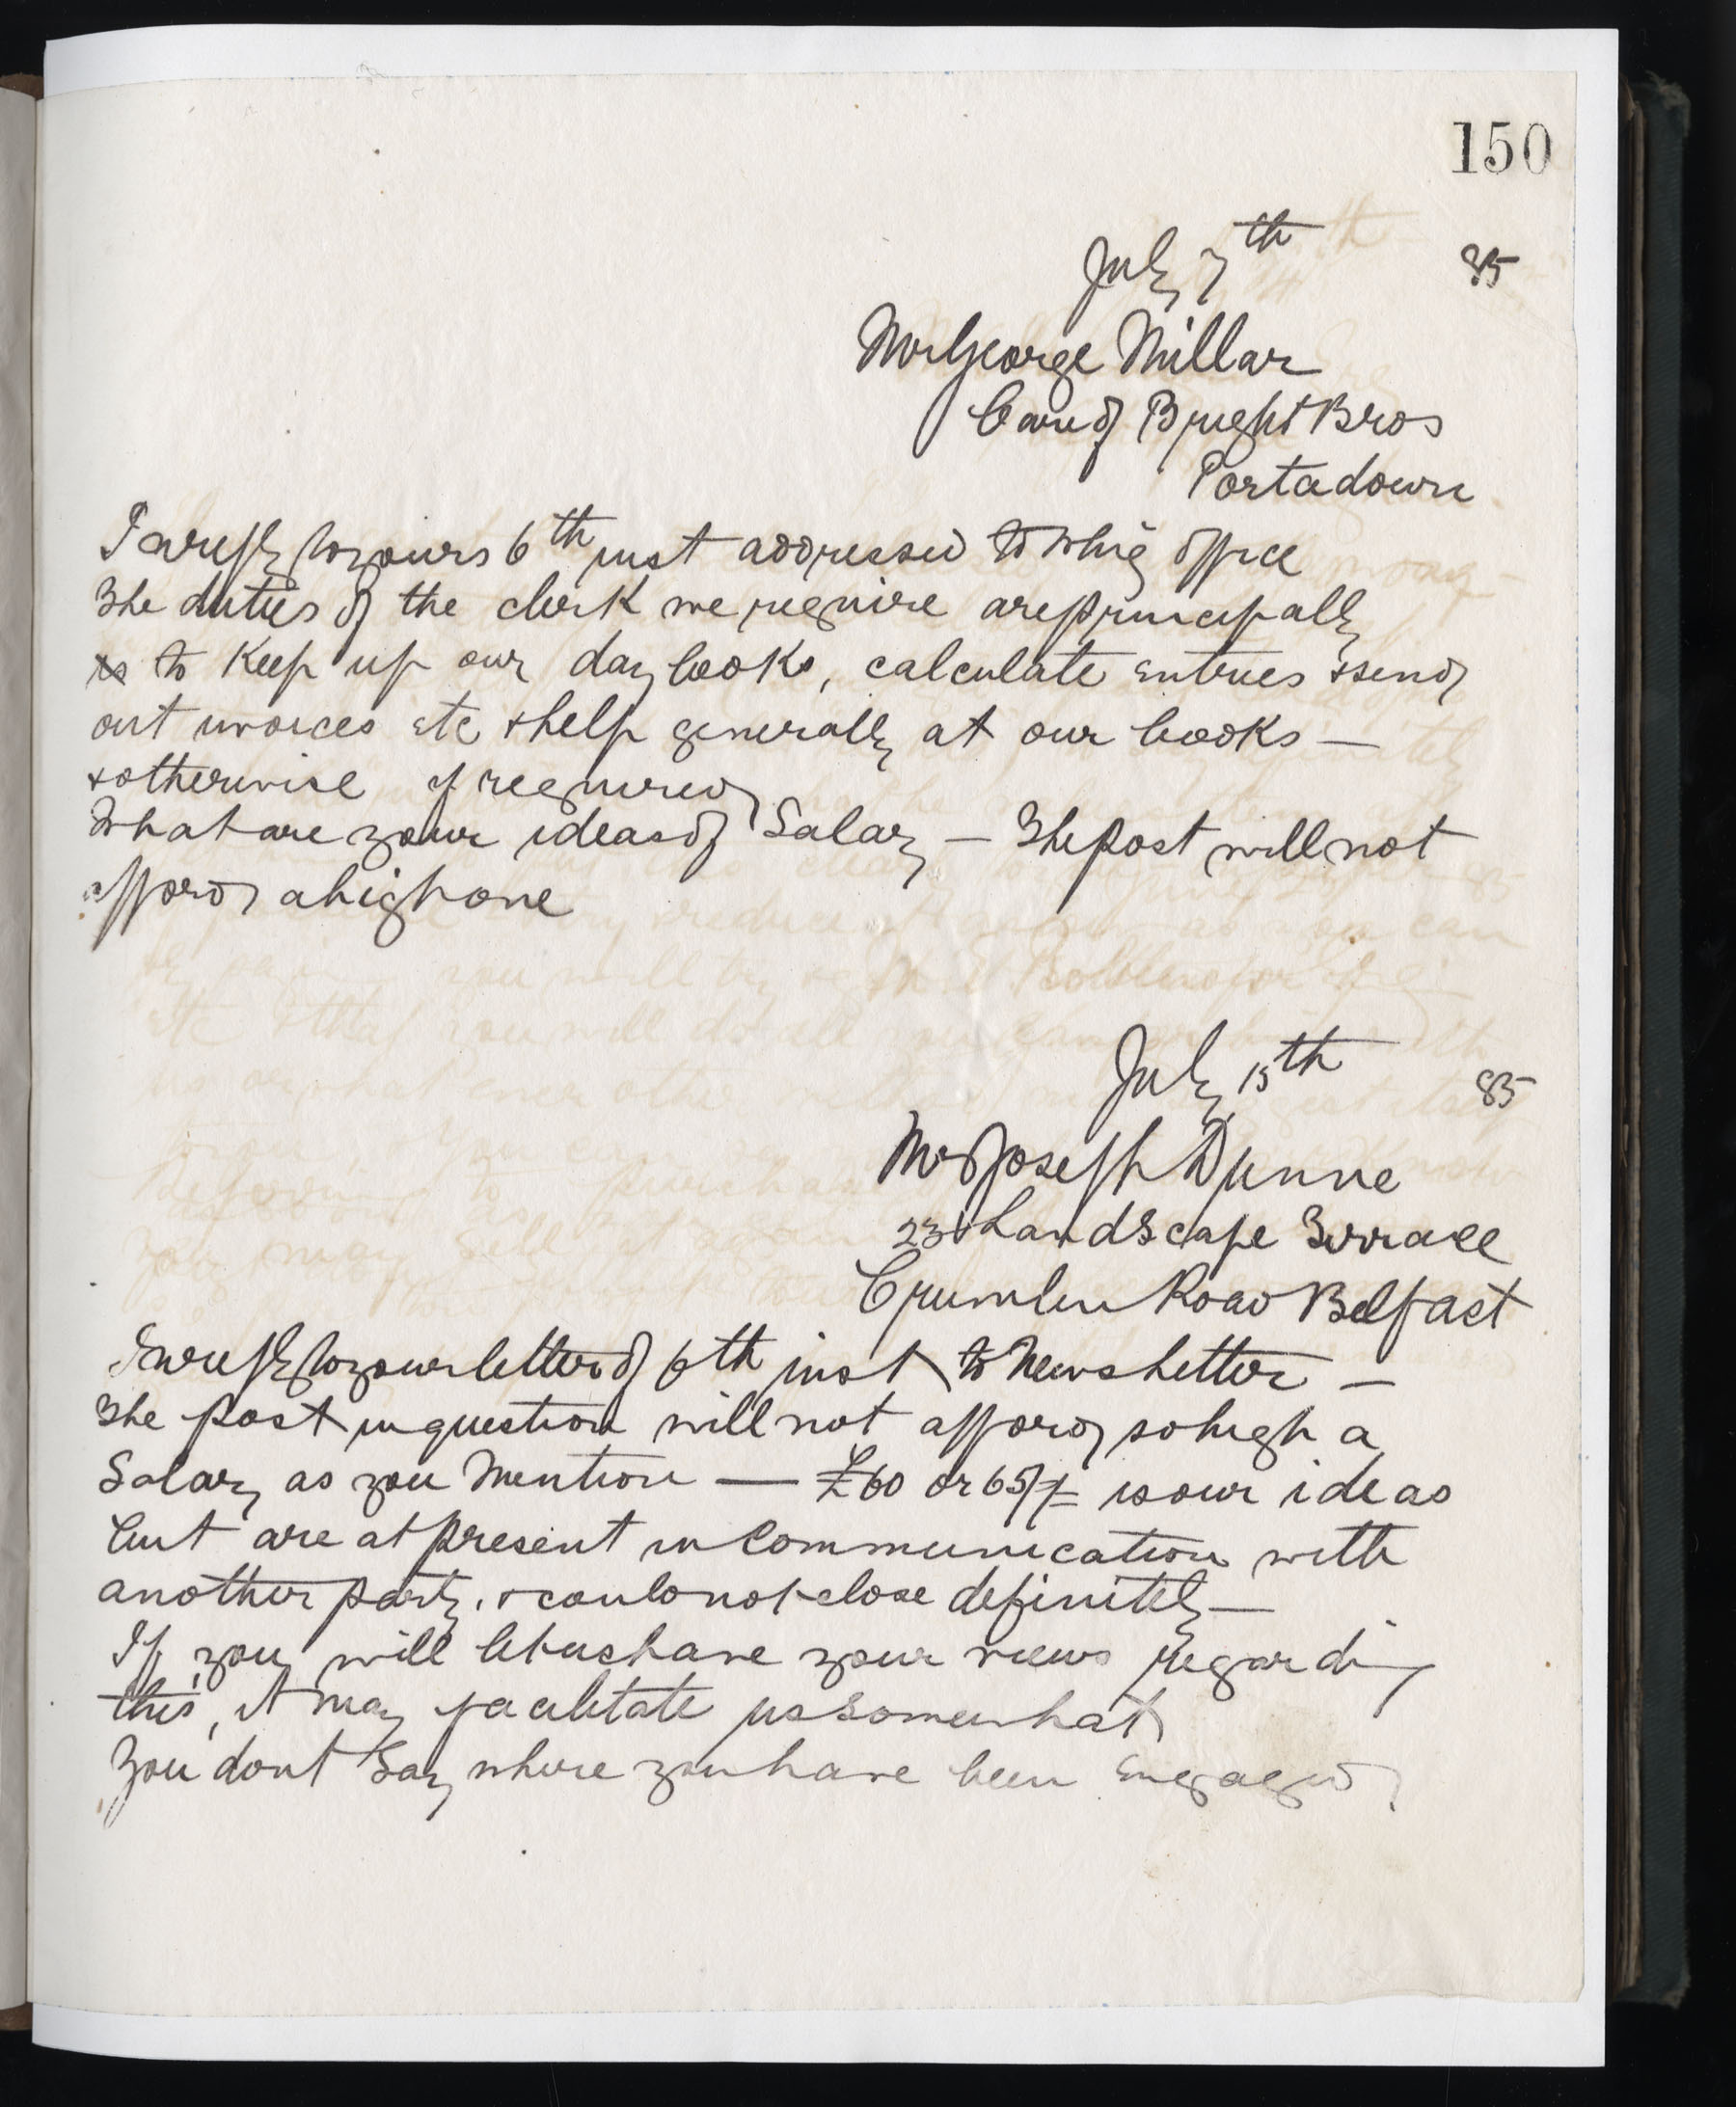 150
July 7th 85
Mr George Millar
Care of Bright Bros
Portadown
In reply to yours 6th inst addressed to Whig office
The duties of the clerk we require are principally
to keep up our day books, calculate entries & send
out invoices etc & help generally at our books —
& otherwise if required
What are your ideas of Salary — The post will not
afford a high one
July 15th 85
Mr Joseph Dunne
23 Landscape Terrace
Crumlin Road Belfast
In reply to your letter of 6th inst to News Letter —
The post in question will not afford so high a
Salary as you mention — £60 or 65/£ is our ideas
but are at present in Communication with
another party. & could not close definitely —
If you will let us have your views regarding
this, it may facilitate us somewhat
You dont Say where you have been Engaged